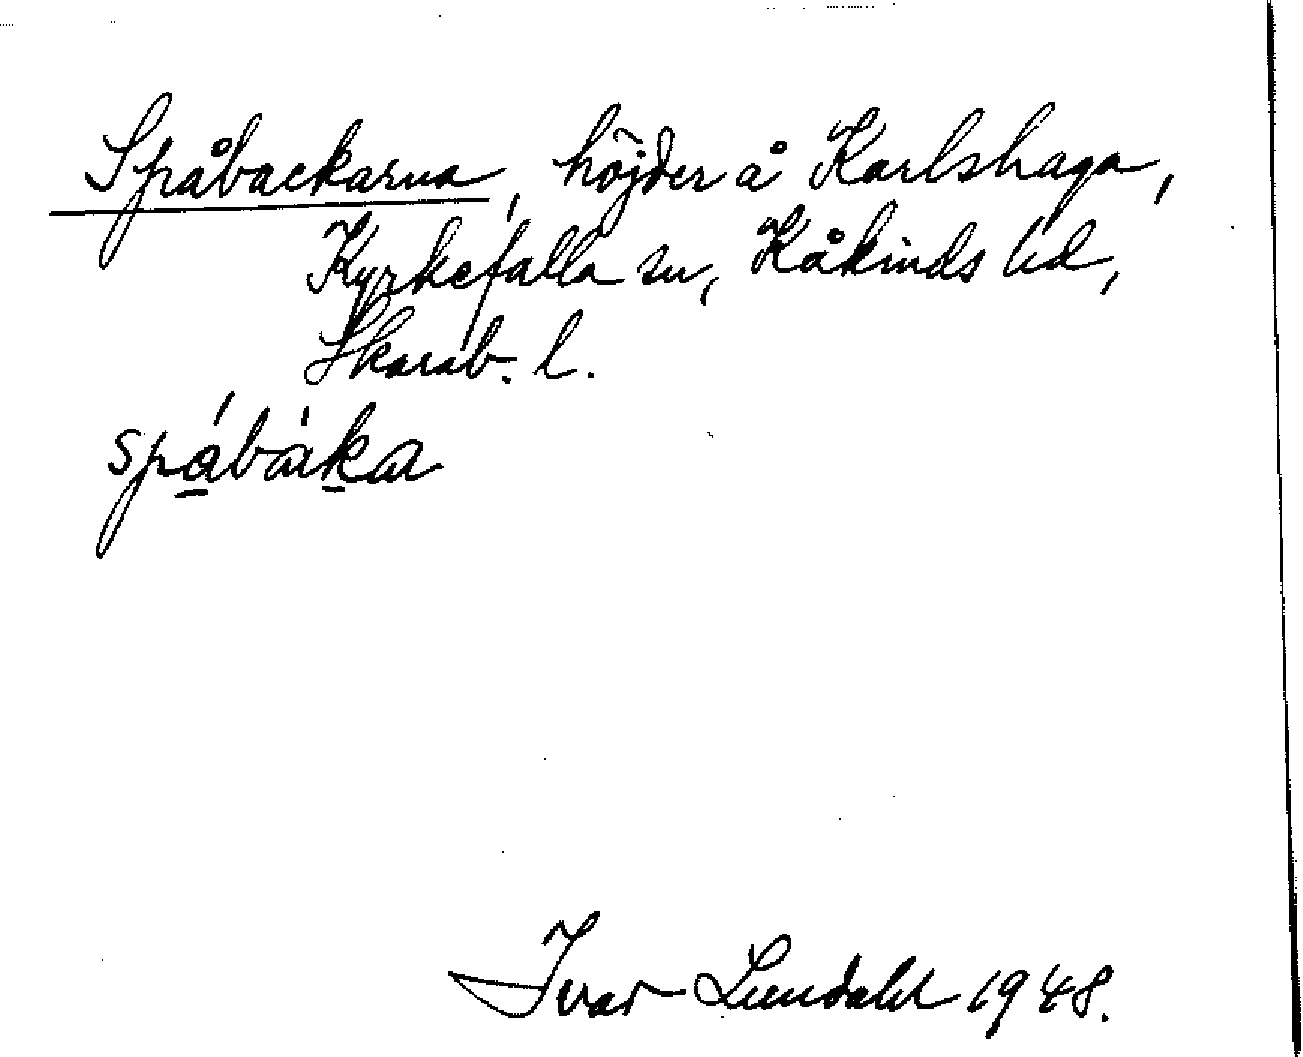 Spåbackarna, höjder å Karlshaga,
Kyrkefalla sn, Kåkinds hd,
Skarab. l.
spábàka
Ivar Lundahl 1948.